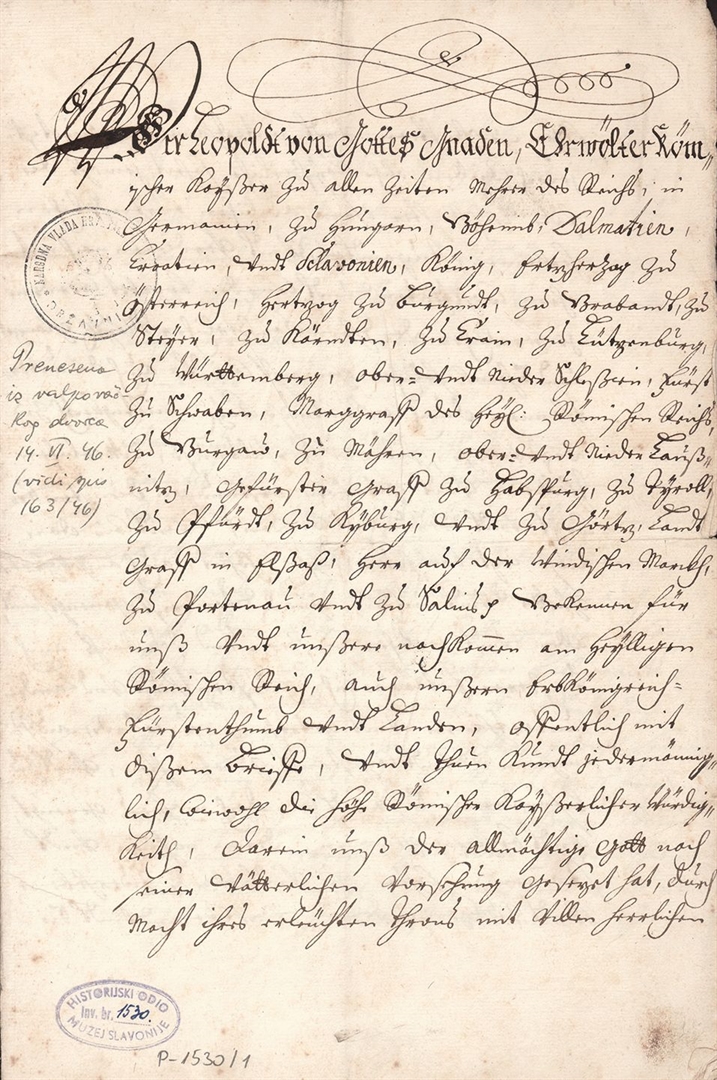 Wir Leopoldt von Gottes Gnaden, Ehrwölter Röm„
ischer Kayßer zu allen Zeiten Mehrer des Reichs, in
Germanien, zu Hungarn, Böheimb, Dalmatien,
Croatien, undt Sclavonien, König, Ertzherzog zu
Österreich, Hertzog zu Burgundt, zu Brabandt, zu
Steyer, zu Kärndten, zu Crain, zu Lützenburg,
zu Württemberg, ober= undt Nieder Schleßien, Fürst
zu Schwaben, Marggraff des Heyl: Römischen Reichs,
zu Burgaw, zu Mähren, ober= undt Nieder Lauß„
nitz, Gefürster Graff zu Habspurg, zu Tyroll,
zu Pfürdt, zu Kyburg, undt zu Görtz, Landt
Graff in Elßaß, Herr auf der Windischen Marckh,
zu Portenau undt zu Salins Bekennen für
unß undt unßere nachkommen am Heylligen
Römischen Reich, auch unßern Erbkönigreich=
Fürstenthumb undt Landen, offentlich mit
dißem Brieffe, undt thuen Kundt jedermännig„
lich, wiewohl die höhe Römischer Kayßerlicher Würdig„
Keith, darein unß der allmächtige Gott nach
seiner Vätterlichen Vorsehung gesezet hat, durch
Macht ihres erleüchten Throns mit Villen herrlichen
NARODNA VLADA
Prenesena
iz valpovač
kog dvorca
14. VI. 46.
(vidi
163/46)
HISTORIJSKI ODIO
Inv. br. 1530.
MUZEJ SLAVONIJE
P-1530/1